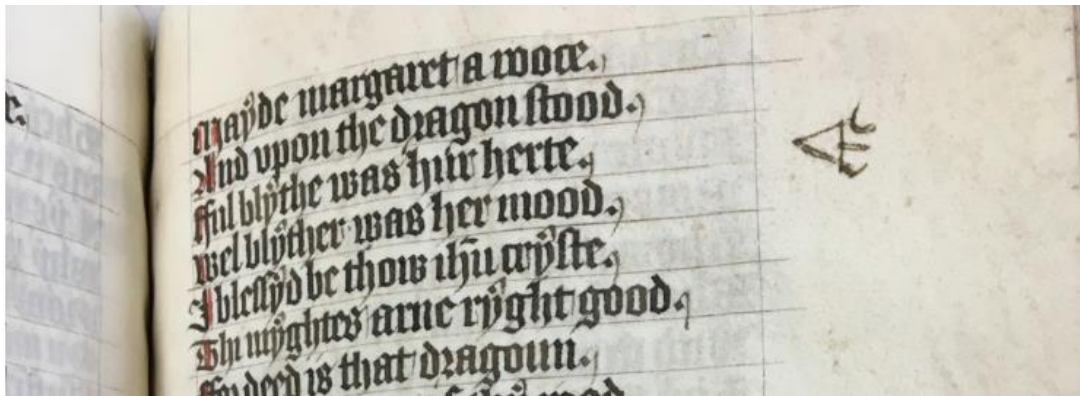 e.
Mayde margaret a wooe.
And vpon the dragon stood.
Ful blythe was hir herte.
wel blyther was her mood.
Iblessyd be thow ihu cryste.
Thi myghtes arne ryght good.
For deed is that dragoun.
mood